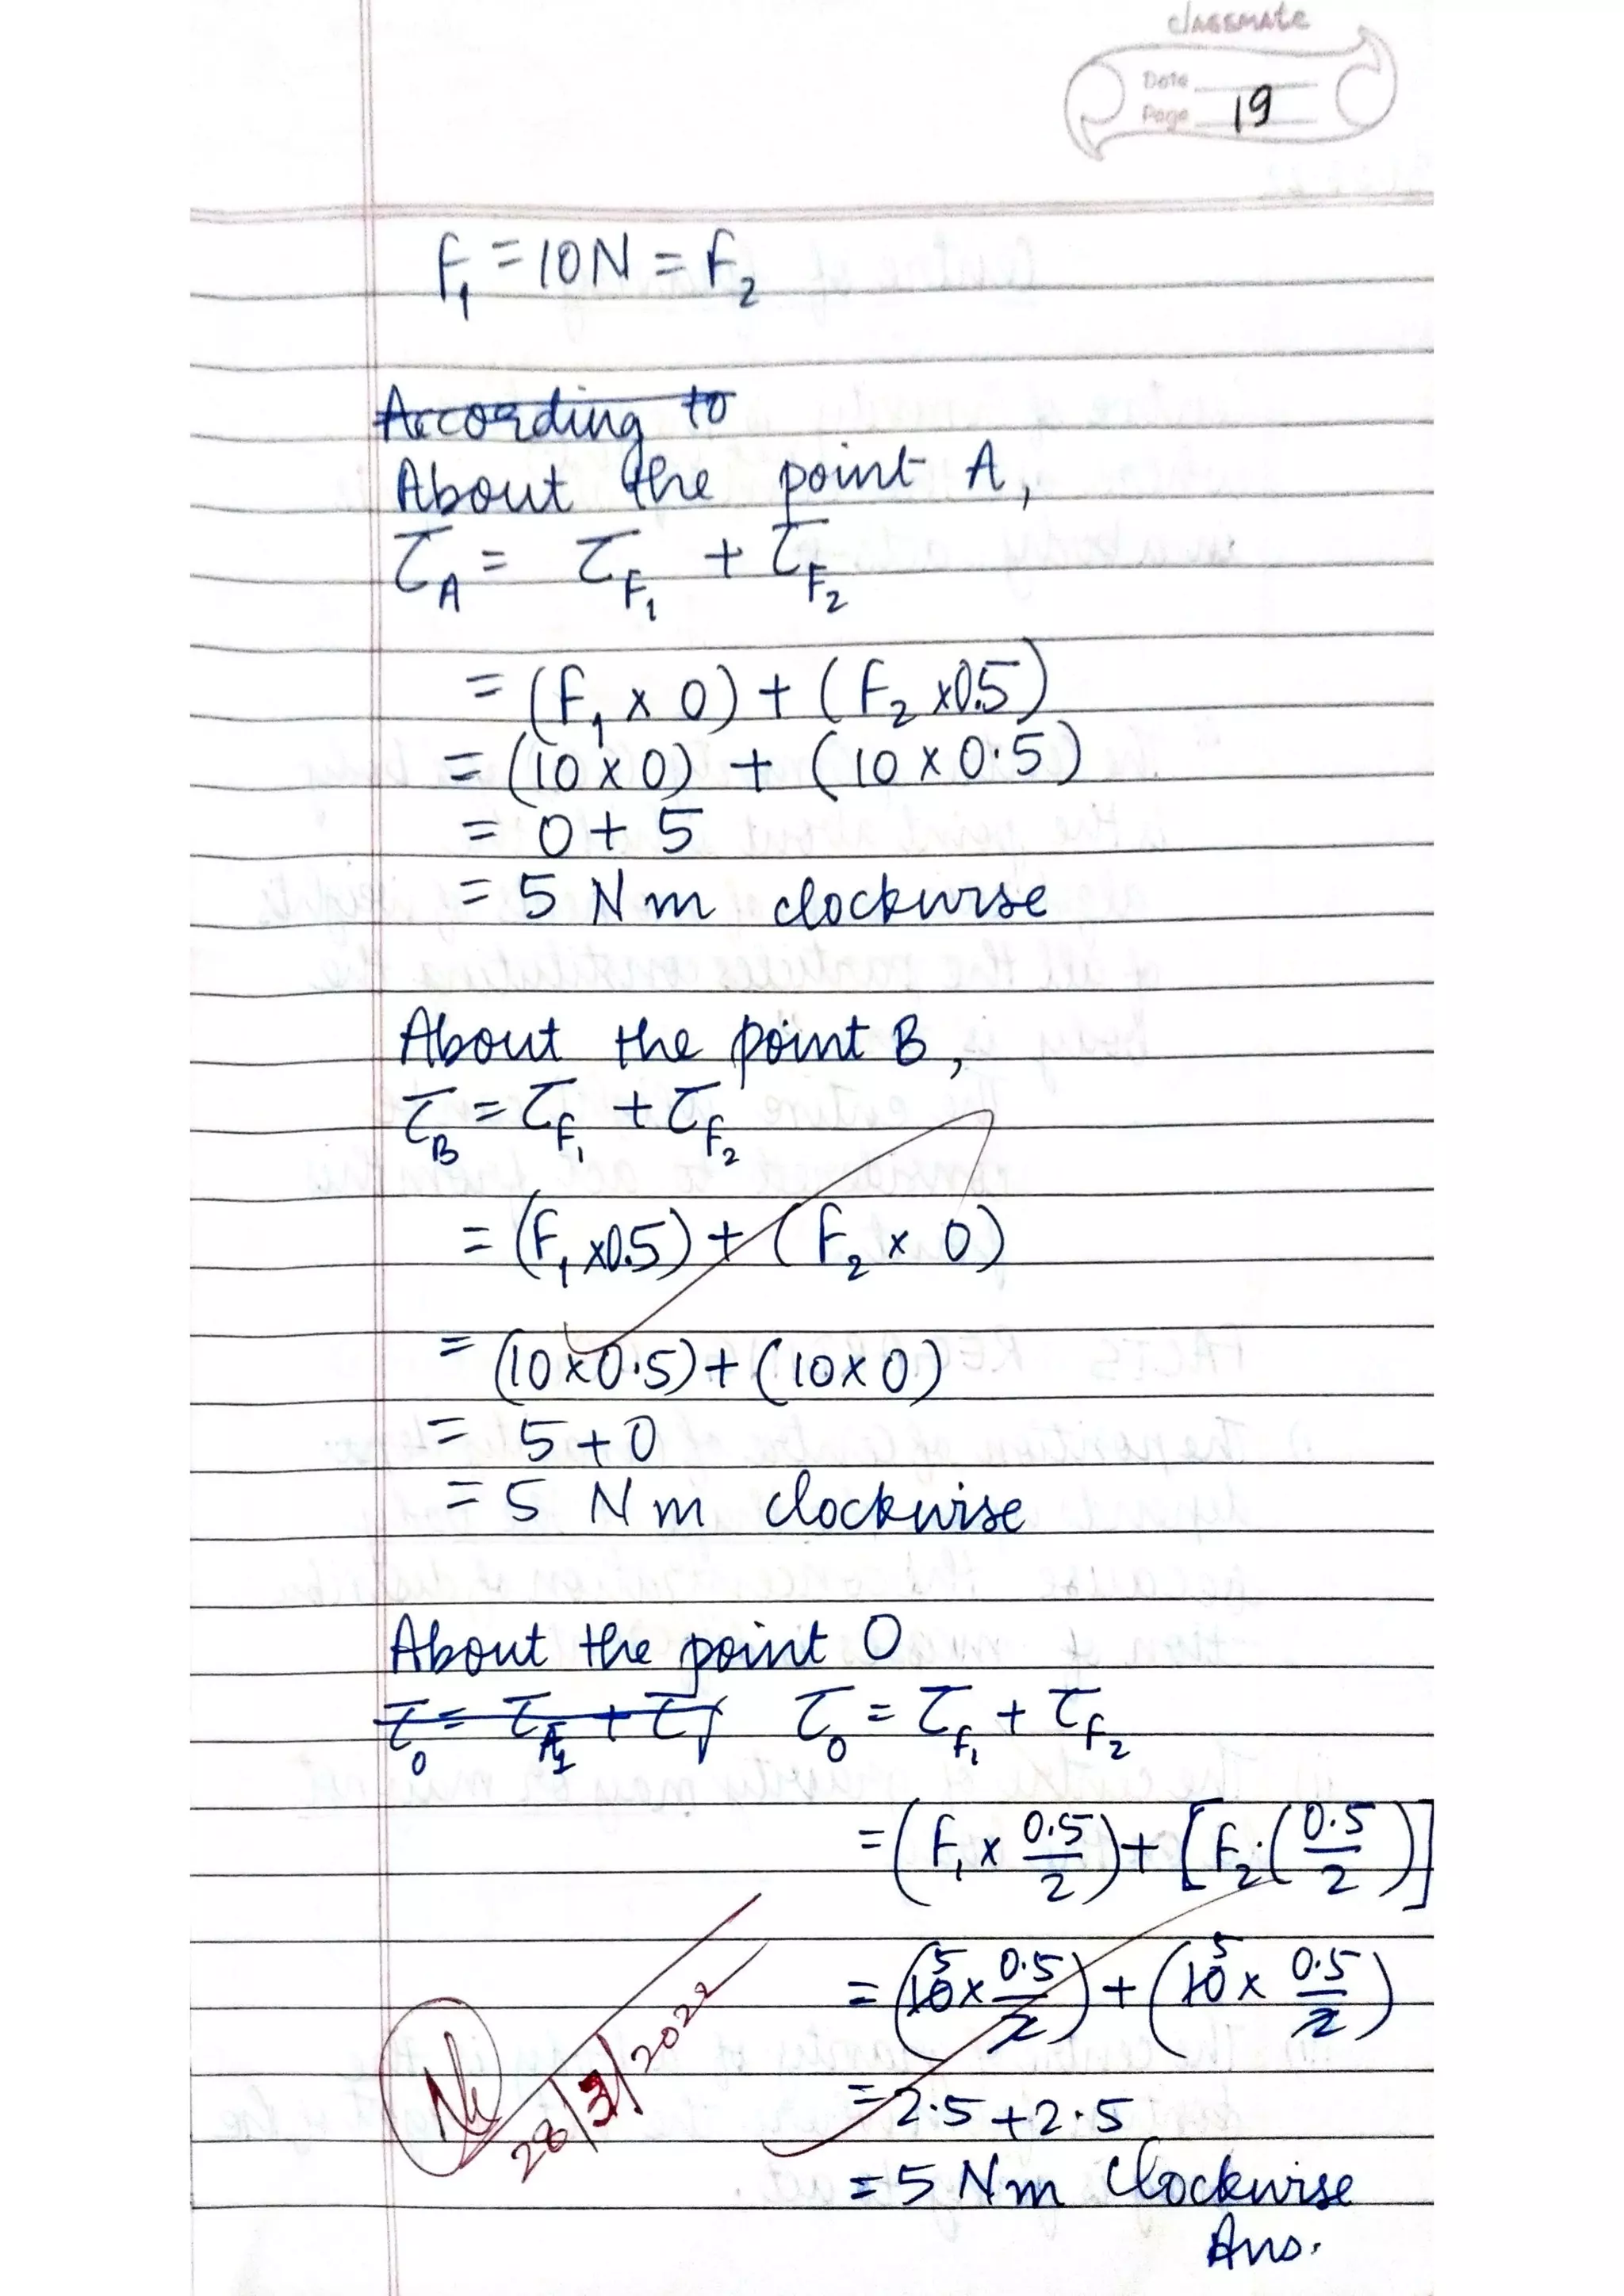 classmate
Date
Page 19
F₁ = 10N = F₂
According to
About the point A,
τ_A = τ_F₁ + τ_F₂
= (F₁ × 0) + (F₂ × 0.5)
= (10 × 0) + (10 × 0.5)
= 0 + 5
= 5 Nm clockwise
About the point B,
τ_B = τ_F₁ + τ_F₂
= (F₁ × 0.5) + (F₂ × 0)
= (10 × 0.5) + (10 × 0)
= 5 + 0
= 5 Nm clockwise
About the point O
τ_O = τ_A₁ + τ_f τ_O = τ_F₁ + τ_F₂
= (F₁ × 0.5/2) + [F₂ · (0.5/2)]
= (10 5 × 0.5/2) + (10 5 × 0.5/2)
= 2.5 + 2.5
28/3/2022
= 5 Nm Clockwise
Ans.